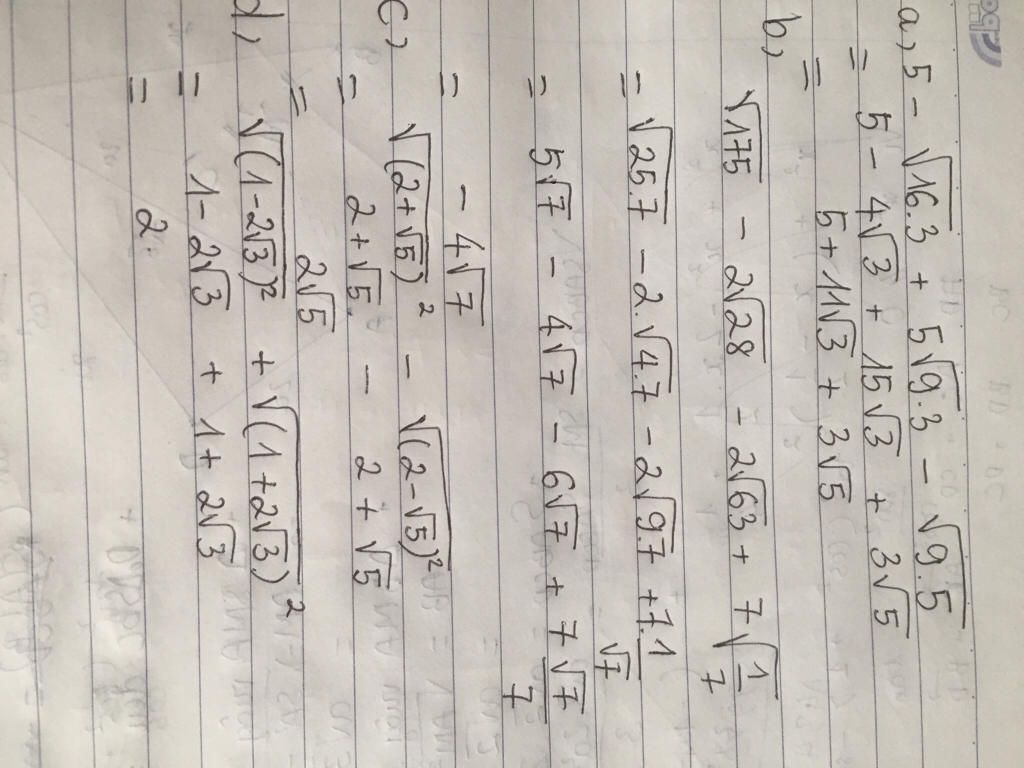 a, 5 - √16.3 + 5√9.3 - √9.5
= 5 - 4√3 + 15√3 + 3√5
= 5 + 11√3 + 3√5
b, √175 - 2√28 - 2√63 + 7√1/7
= √25.7 - 2.√4.7 - 2√9.7 + 7.1/√7
= 5√7 - 4√7 - 6√7 + 7√7/7
= - 4√7
c, √(2+√5)² - √(2-√5)²
= 2+√5 - 2+√5
= 2√5
d, √(1-2√3)² + √(1+2√3)²
= 1-2√3 + 1+2√3
= 2